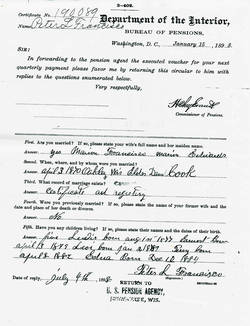 3-402.
Certificate No. 190089
Department of the Interior,
Name, Peter L Francisco
BUREAU OF PENSIONS,
Washington, D. C., January 15, 1898.
SIR:
In forwarding to the pension agent the executed voucher for your
next quarterly payment please favor me by returning this circular to him with
replies to the questions enumerated below.
Very respectfully,
Commissioner of Pensions.
First. Are you married? If so, please state your wife's full name and her maiden name.
Answer: yes Maria Francisco Maria Edwards
Second. When, where, and by whom were you married?
Answer: april 3 1870 Cook
Third. What record of marriage exists?
Answer: Certificate and registry
Fourth. Were you previously married? If so, please state the name of your former wife and the
place and date of her death or divorce.
Answer: No
Fifth. Have you any children living? If so, please state their names and the dates of their birth.
Answer: five Born
april
april Born Dec 10 1884
Date of reply, July 4th, 1898
Peter L Francisco
RETURN TO
U. S. PENSION AGENCY,
MILWAUKEE, WIS.